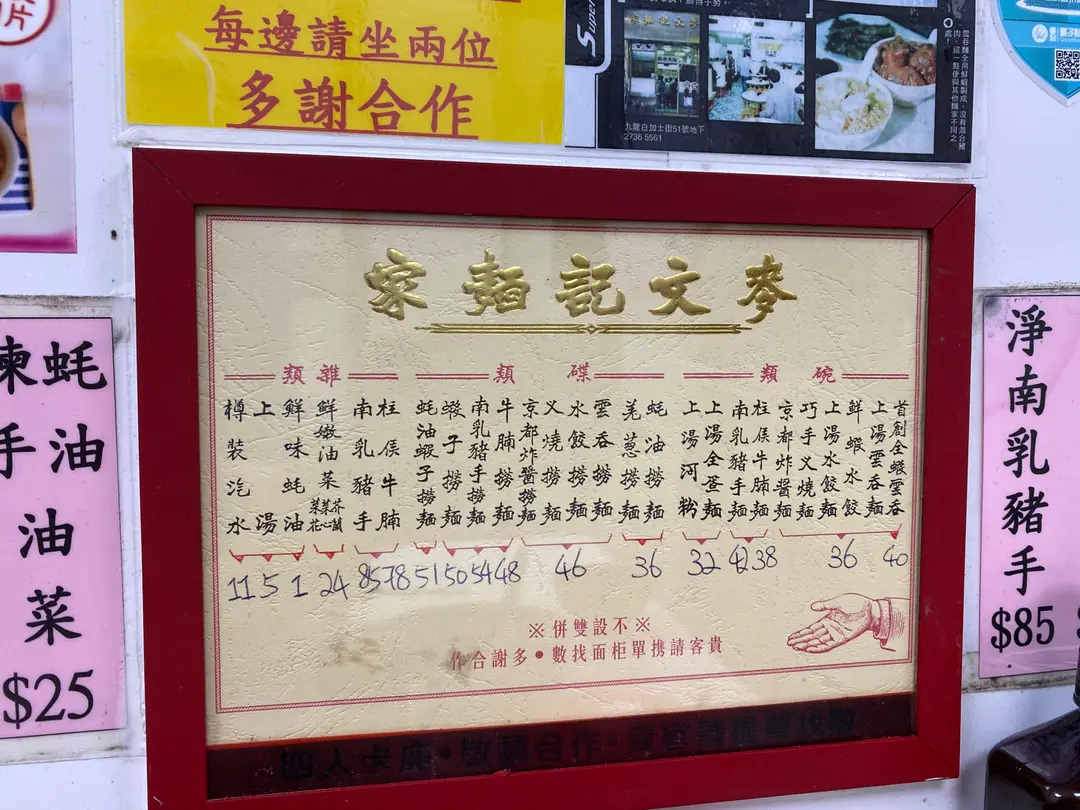 每邊請坐兩位
多謝合作
Super
九龍白加士街51號地下
2736 5561
雲吞麵全用鮮蝦製成，沒有混合豬
肉，這一點便與其他麵家不同之
處！
麥文記麵家
碗類
首創全蝦雲吞
上湯雲吞麵
鮮蝦水餃
上湯水餃麵
巧手义燒麵
京都炸醬麵
柱侯牛腩麵
南乳豬手麵
上湯全蛋麵
上湯河粉
40
36
38
42
32
碟類
蚝油撈麵
羌葱撈麵
雲吞撈麵
水餃撈麵
义燒撈麵
京都炸醬撈麵
牛腩撈麵
南乳豬手撈麵
蝦子撈麵
蚝油蝦子撈麵
36
46
48
54
50
51
雜類
柱侯牛腩
南乳豬手
鮮嫩油菜
芥蘭
菜心
鮮味蚝油
上湯
樽裝汽水
78
85
24
1
5
11
※不設雙併※
貴客請携單柜面找數•多謝合作
四人卡座·敬請合作·
淨南乳豬手
$85
蚝油
油菜
$25